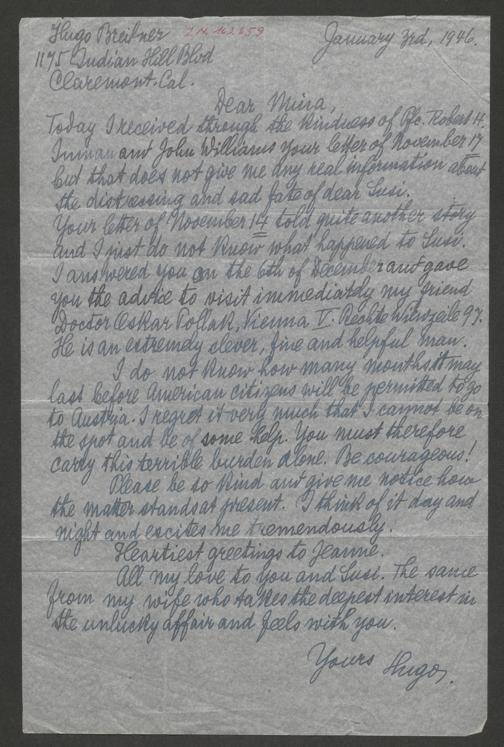 Hugo Breitner
1175 Indian Hill Blvd
Claremont. Cal.
January 3rd, 1946.
Dear Mina,
Today I received through the kindness of Pfc. Robert H.
Inman and John Williams your letter of November 17
but that does not give me any real information about
the distressing and sad fate of dear Susi.
Your letter of November 14 told quite another story
and I just do not know what happened to Susi.
I answered you on the 6th of December and gave
you the advice to visit immediately my friend
Doctor Oskar Pollak, Vienna V. Rechte Wienzeile 97.
He is an extremely clever, fine and helpful man.
I do not know how many months it may
last before American citizens will be permitted to go
to Austria. I regret it very much that I cannot be on
the spot and be of some help. You must therefore
carry this terrible burden alone. Be courageous!
Please be so kind and give me notice how
the matter stands at present. I think of it day and
night and excites me tremendously.
Heartiest greetings to Jeanne.
All my love to you and Susi. The same
from my wife who takes the deepest interest in
the unlucky affair and feels with you.
Yours Hugo.